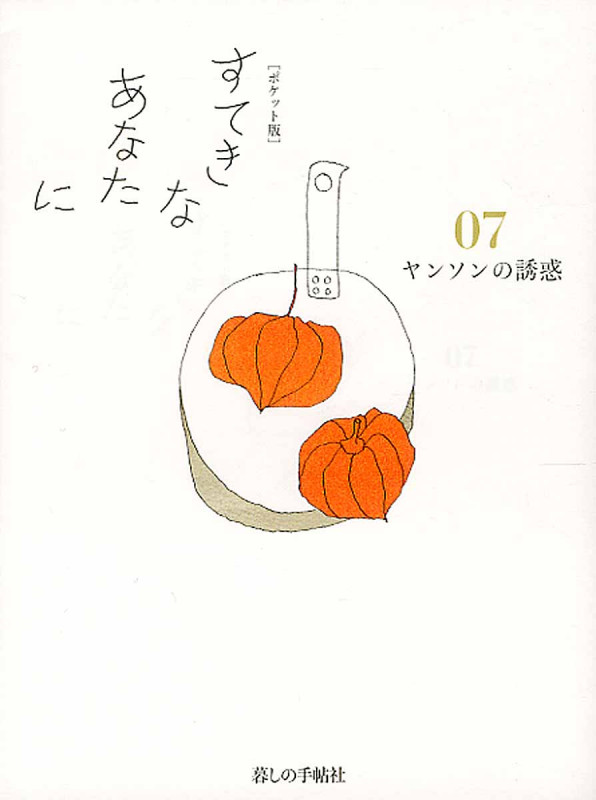 [ポケット版]
すてきな
あなたに
07
ヤンソンの誘惑
暮しの手帖社